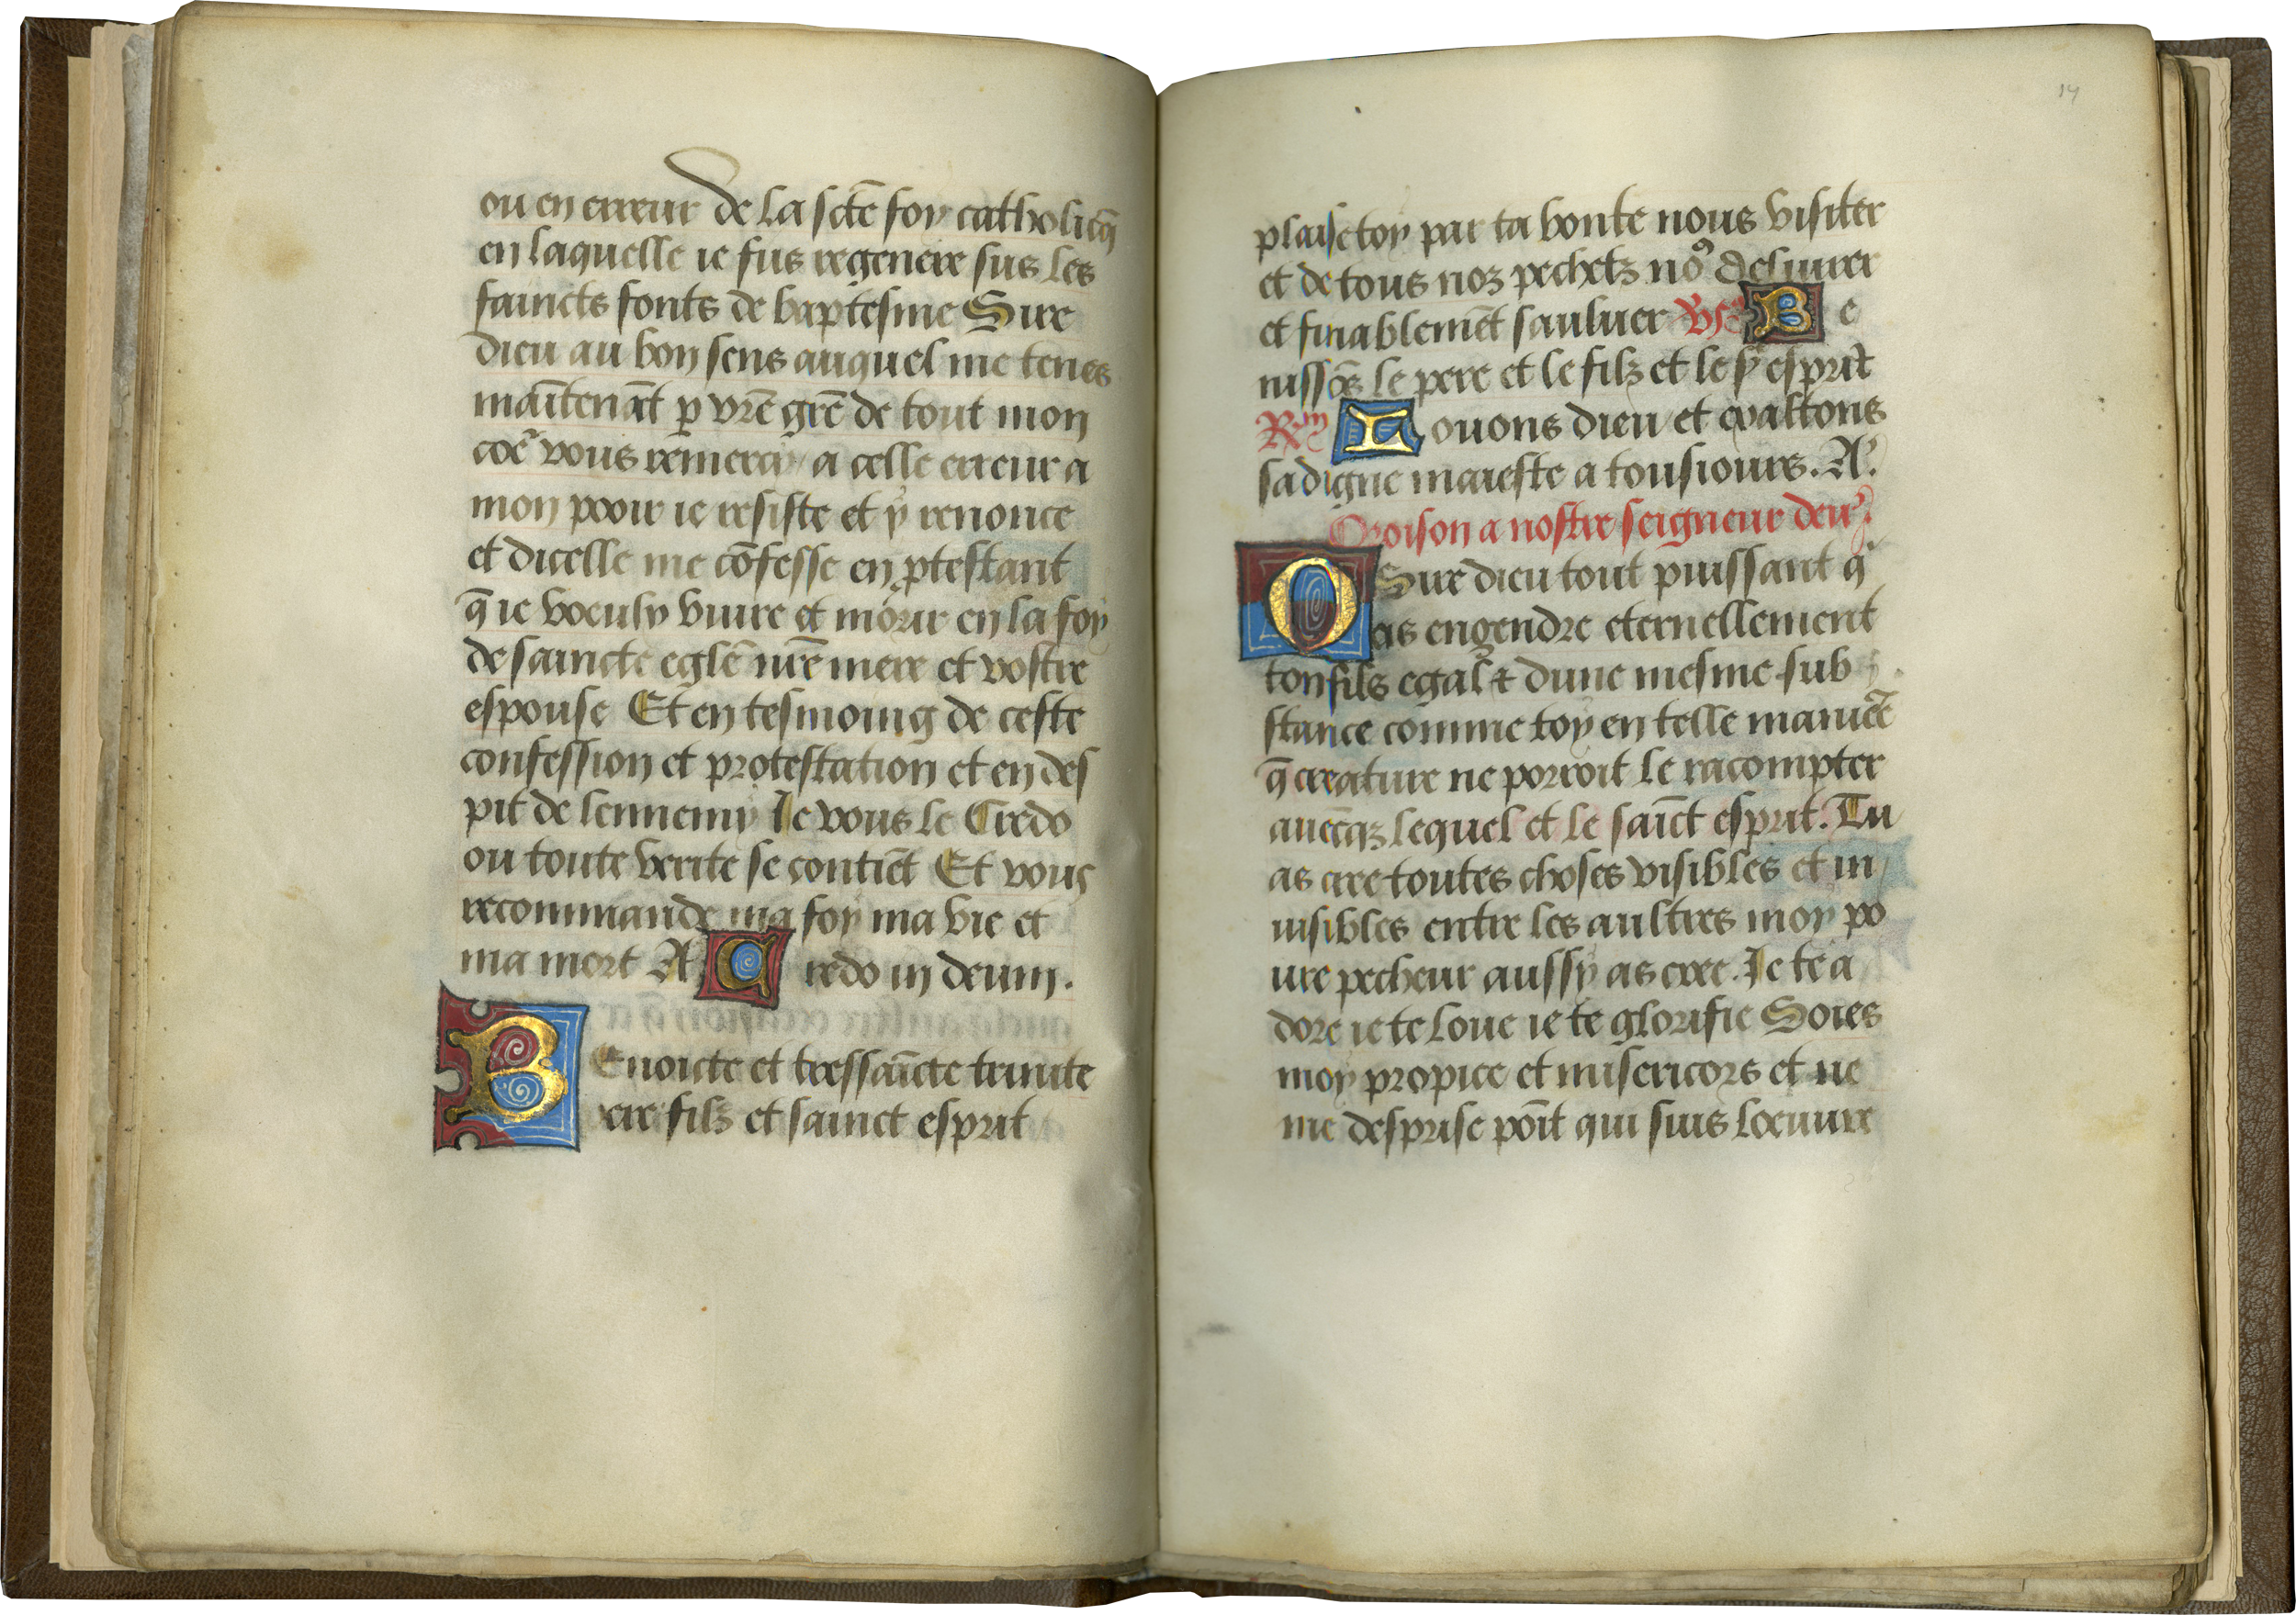 ou en erreur de la scte̅ foy catholicq̅
en laquelle ie fus regenere sus les
saincts fonts de baptesme Sire
dieu au bon sens auquel me tenes
mai̅tena̅t p̱ vr̅e gr̅e de tout mon
coe᷑ vous remercy a celle erreur a
mon pooir ie resiste et y renonce
et dicelle me co̅fesse en ꝓtestant
q̅ ie voeuly viure et morir en la foy
de saincte egle̅ nr̅e mere et vostre
espouse Et en tesmoing de ceste
confession et protestation et en des
pit de lennemy Je vous le Credo
ou toute verite se contie̅t Et vous
recommande ma foy ma vie et
ma mort A Credo in deum.
BEnoicte et tressai̅cte trinite
pere filz et sainct esprit
14
plaise toy par ta bonte nous visiter
et de tous noz pechetz noꝰ deliurer
et finableme̅t sauluer Vs Be
nisso̅s le pere et le filz et le st esprit
Ry Louons dieu et exaltons
sa digne maieste a tousiours. A.
Oroison a nostre seigneur dieu.
O Sire dieu tout puissant q
as engendre eternellement
ton fils egal ⁊ dune mesme sub
stance comme toy en telle manie᷑e
q̅ creature ne porroit le racompter
auecq̅z lequel et le sai̅ct esprit. Tu
as cree toutes choses visibles et in
uisibles entre les aultres moy po
ure pecheur aussy as cree. Je te a
dore ie te loue ie te glorifie Soies
moy propice et misericors et ne
me desprise poi̅t qui suis loeuure